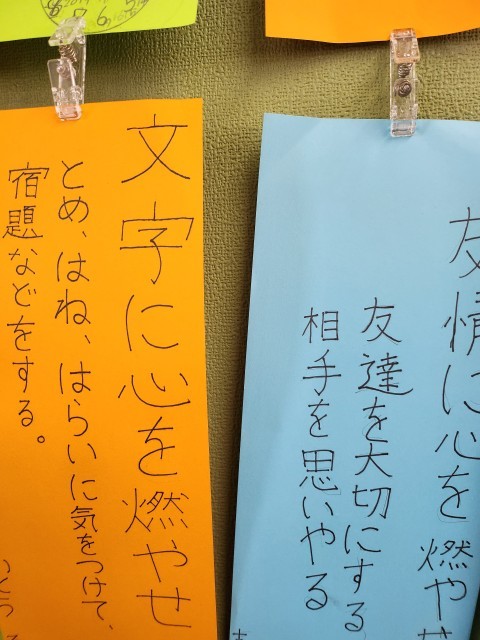 友情に心を燃やせ
友達を大切にする
相手を思いやる
文字に心を燃やせ
とめ、はね、はらいに気をつけて、
宿題などをする。